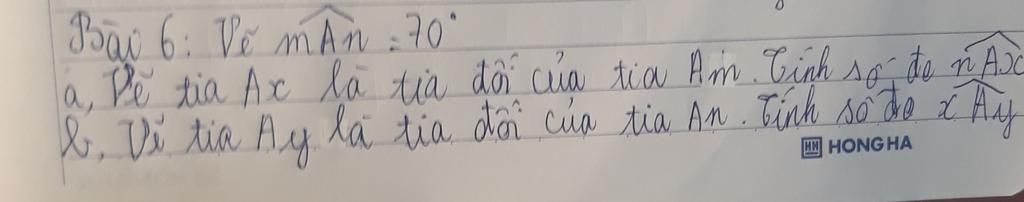 Bài 6: Vẽ mAn = 70°
a, Vẽ tia Ax là tia đối của tia Am. Tính số đo nAx
b, Vẽ tia Ay là tia đối của tia An. Tính số đo xAy
HH HONG HA